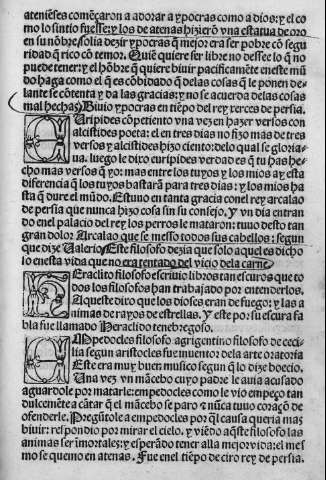 atenieses començaron a adorar a ypocras como a dios: y el co
mo lo sintio fuesse: y los de atenas hizierõ vna estatua de oro
en su nõbre/ solia dezir ypocras q̃ mejor era ser pobre cõ segu
ridad q̃ rico cõ temor. Quiẽ quiere ser libre no dessee lo q̃ no
puede tener: y el hõbre q̃ quiere biuir pacificamẽte eneste mũ
do haga como el q̃ es cõbidado q̃ delas cosas q̃ le ponen de-
lante se cõtenta y da las gracias: y no se acuerda delas cosas
mal hechas) Biuio ypocras en tiẽpo del rey xerces de persia.
EUripides cõpetiento vna vez en hazer versos con
alcistides poeta: el en tres dias no fizo mas de tres
versos y alcistides hizo ciento: delo qual se gloria-
ua. luego le dixo euripides verdad es q̃ tu has he-
cho mas versos q̃ yo: mas entre los tuyos y los mios ay esta
diferencia q̃ los tuyos bastarã para tres dias: y los mios ha
sta q̃ dure el mũdo. Estuuo en tanta gracia conel rey arcalao
de persia que nunca hizo cosa sin su consejo. Y vn dia entran
do enel palacio del rey los perros le mataron: tuuo desto tan
gran dolor Arcalao que se messo todos sus cabellos: segun
que dize Ualerio/ Este filosofo dezia que solo aquel es dicho
lo enesta vida que no era tentado del vicio dela carne.
HEraclito filosofo escriuio libros tan escuros que to
dos los filosofos han trabajado por entenderlos.
Aqueste dixo que los dioses eran de fuego: y las a
nimas de rayos de estrellas. Y este por su escura fa
bla fue llamado Heraclido tenebregoso.
EMpedocles filosofo agrigentino filosofo de ceci
lia segun aristocles fue inuentor dela arte oratoria
Este era muy buen musico segun q̃ lo dize boecio.
Una vez vn mãcebo cuyo padre le auia acusado
aguardole por matarle: empedocles como le vio empeço tan
dulcemẽte a cãtar q̃ el mãcebo se paro & nũca tuuo coraçõ de
ofenderle. Pregũtole a empedocles por q̃l causa queria mas
biuir: respondio por mirar el cielo. y viẽdo aq̃ste filosofo las
animas ser ĩmortales: y esperãdo tener alla mejor vida: el mes
mo se quemo en atenas. Fue enel tiẽpo de ciro rey de persia.